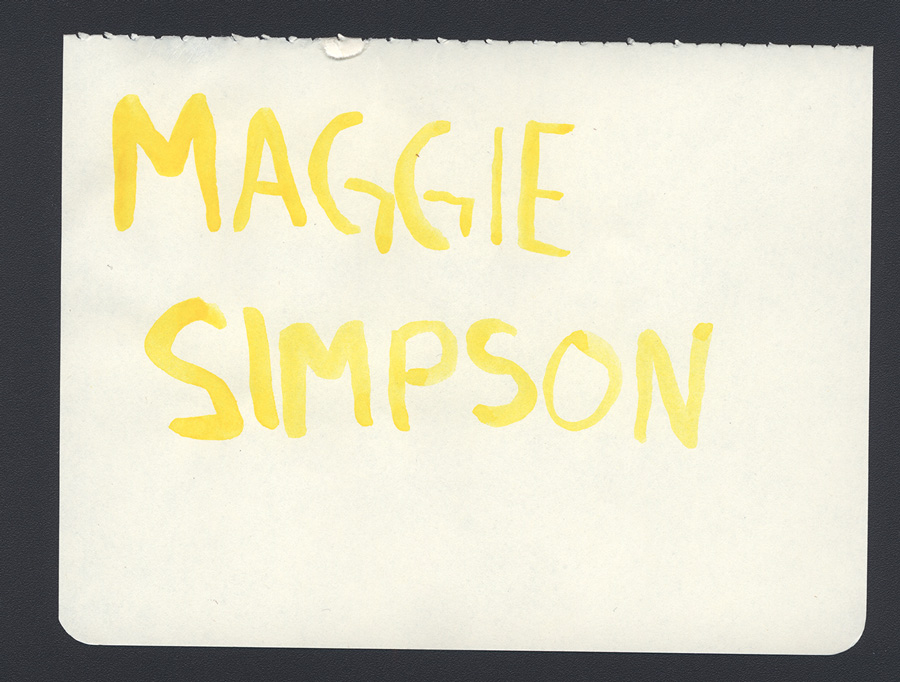 MAGGIE
SIMPSON